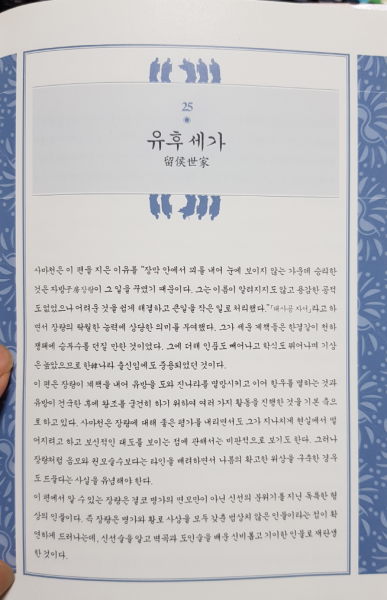 25
유후 세가
留侯世家
사마천은 이 편을 지은 이유를 “장막 안에서 꾀를 내어 눈에 보이지 않는 가운데 승리한
것은 자방子房장량이 그 일을 꾸몄기 때문이다. 그는 이름이 알려지지도 않고 용감한 공적
도 없었으나 어려운 것을 쉽게 해결하고 큰일을 작은 일로 처리했다.”「태사공 자서」라고 하
면서 장량의 탁월한 능력에 상당한 의미를 부여했다. 그가 세운 계책들은 한결같이 천하
쟁패에 승부수를 던질 만한 것이었다. 그에 더해 인물도 빼어나고 학식도 뛰어나며 기상
은 높았으므로 한韓나라 출신임에도 중용되었던 것이다.
이 편은 장량이 계책을 내어 유방을 도와 진나라를 멸망시키고 이어 항우를 멸하는 것과
유방이 건국한 후에 왕조를 굳건히 하기 위하여 여러 가지 활동을 진행한 것을 기본 축으
로 하고 있다. 사마천은 장량에 대해 좋은 평가를 내리면서도 그가 지나치게 현실에서 멀
어지려고 하고 보신적인 태도를 보이는 점에 관해서는 비판적으로 보기도 한다. 그러나
장량처럼 음모와 권모술수보다는 타인을 배려하면서 나름의 확고한 위상을 구축한 경우
도 드물다는 사실을 유념해야 한다.
이 편에서 알 수 있는 장량은 결코 병가의 면모만이 아닌 신선의 분위기를 지닌 독특한 형
상의 인물이다. 즉 장량은 병가와 황로 사상을 모두 갖춘 범상치 않은 인물이라는 점이 확
연하게 드러나는데, 신선술을 알고 벽곡과 도인술을 배운 신비롭고 기이한 인물로 재탄생
한 것이다.